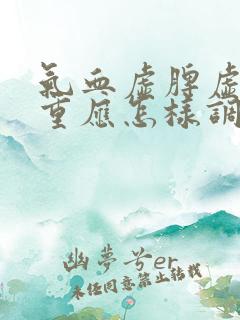 氣血虛脾虛
重應怎樣調
幽夢兮er
未經同意禁止轉載